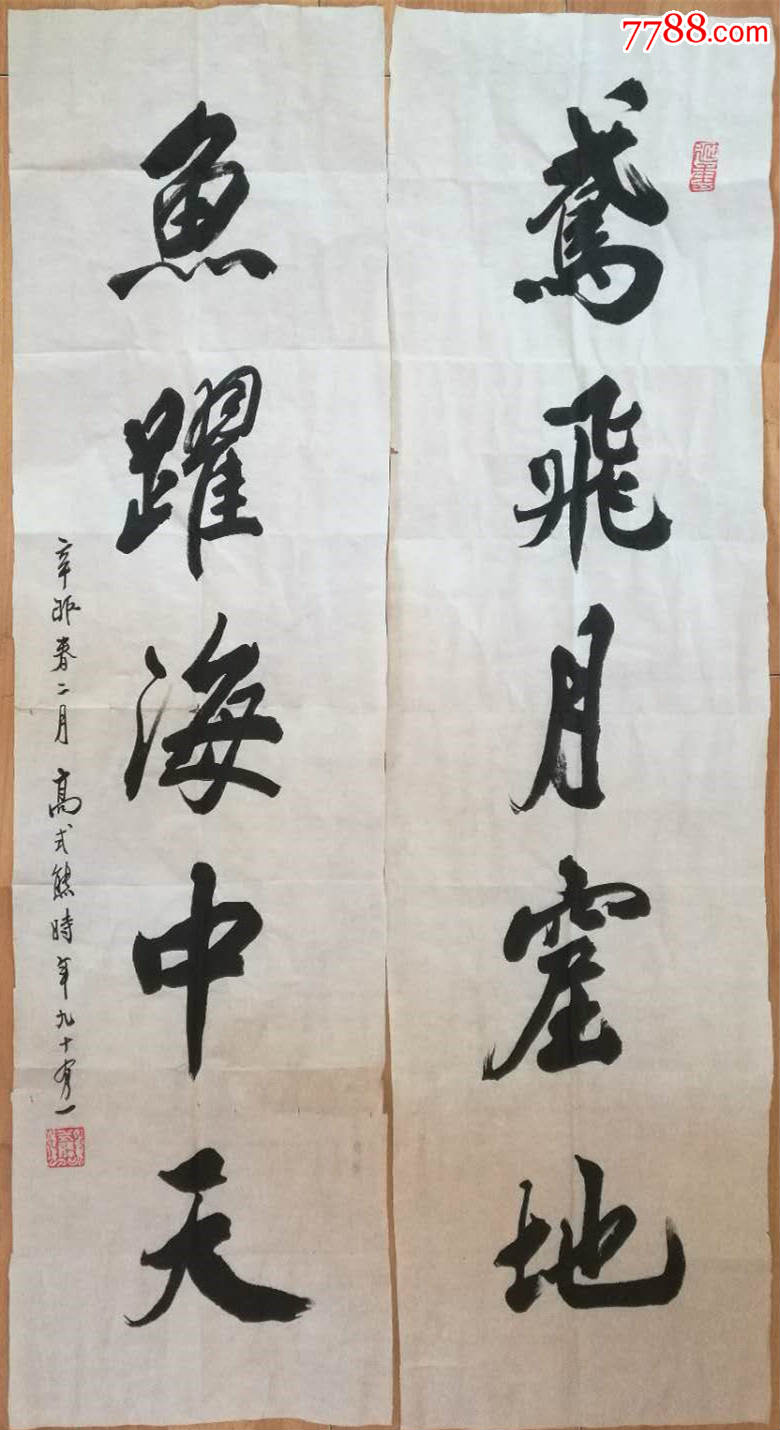 7788.com
鳶飛月窟地
魚躍海中天
辛卯春二月 高式熊時年九十有一